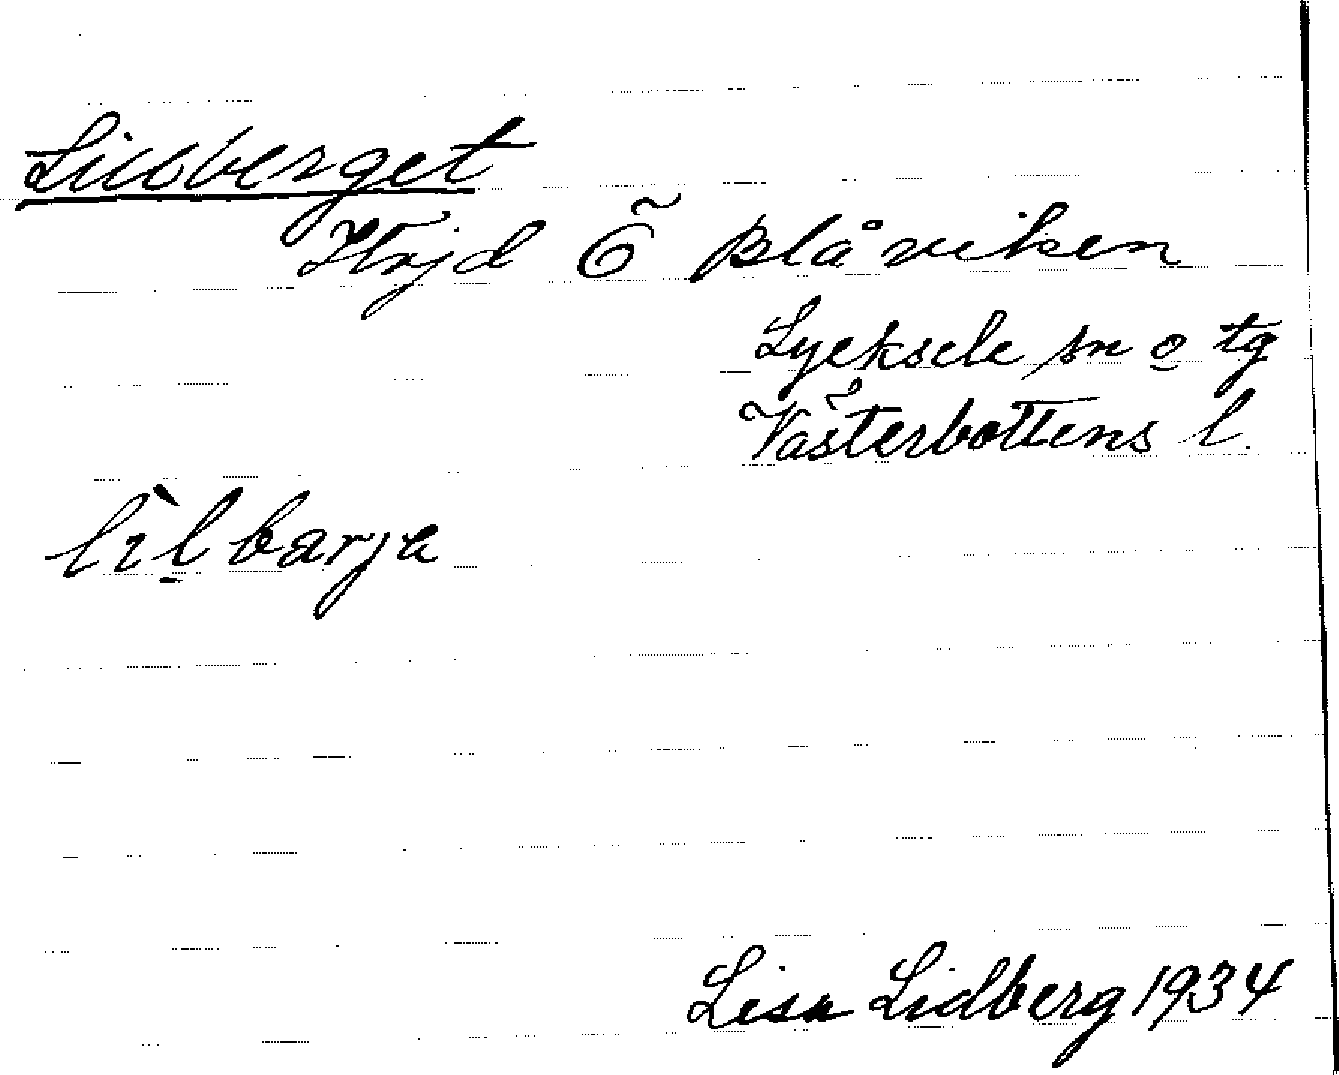 Höjd Ö Blåviken
Lycksele sn o tg
Västerbottens l.
lìl̠barja
Lisa Lidberg 1934